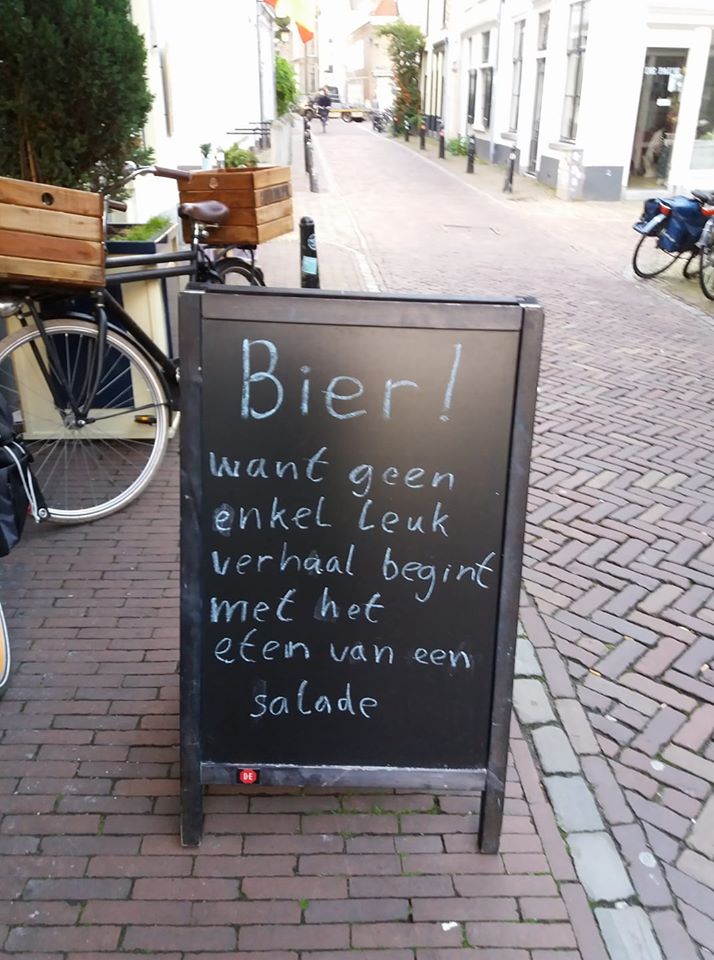 Bier!
want geen
enkel leuk
verhaal begint
met het
eten van een
salade
D·E